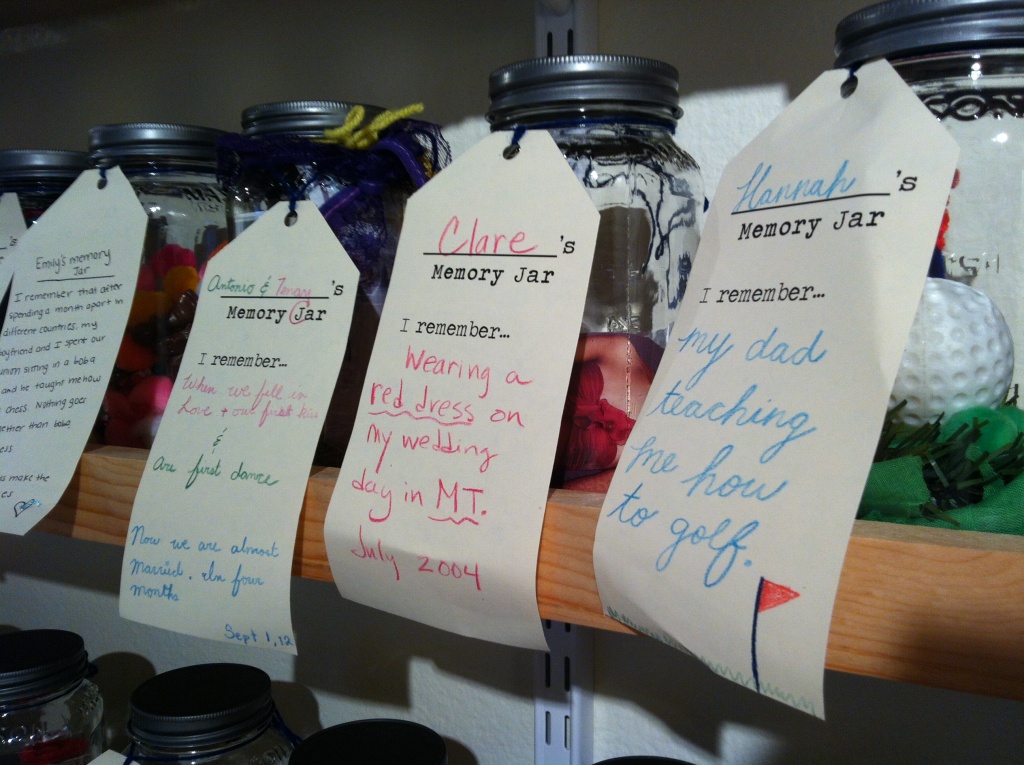 Emily's memory
Jar
I remember that after
spending a month apart in
different countries, my
boyfriend and I spent our
sitting in a boba
and he taught me how
chess. Nothing goes
than boba
make the
Antonio & 's
Memory Jar
I remember...
When we fell in
Love + our first kiss
&
Are first dance
Now we are almost
Married. In four
months
Sept 1, 12
Clare's
Memory Jar
I remember...
Wearing a
red dress on
my wedding
day in MT.
July 2004
Hannah's
Memory Jar
I remember...
my dad
teaching
me how
to golf.